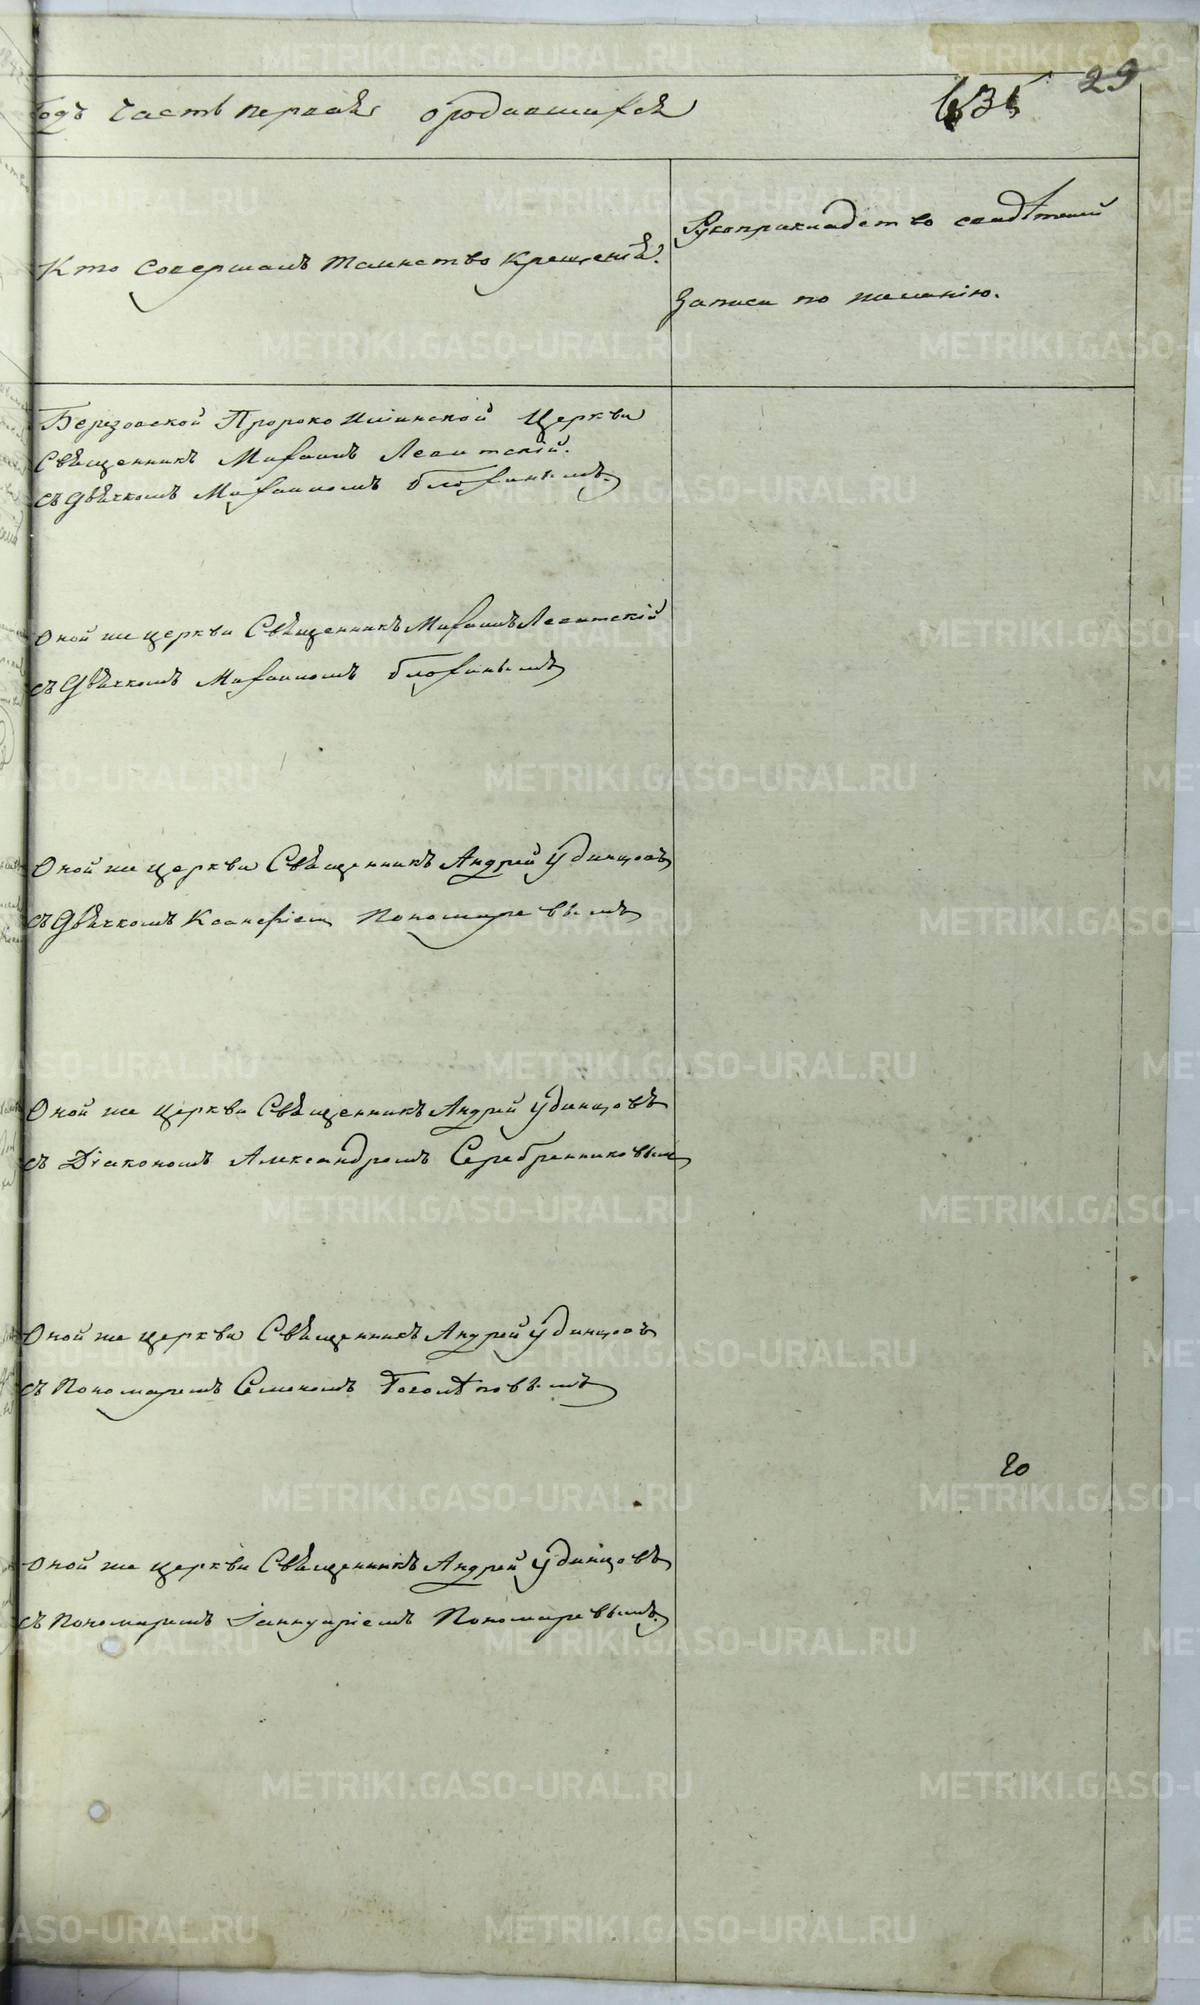 Годъ Часть первая о родившихся
635 29
Кто совершалъ таинство крещенія.
Рукоприкладство свидѣтелей
записи по желанію.
Березовской Пророко Илiинской Церкви
Священникъ Михаилъ Левитскій.
съ Дьячкомъ Михаиломъ
Оной же церкви Священникъ Михаилъ Левитскій
съ Дьячкомъ Михаиломъ
Оной же церкви Священникъ Андрей Удинцовъ
съ Дьячкомъ Пономаревымъ
Оной же церкви Священникъ Андрей Удинцовъ
съ Діакономъ Александромъ Серебренниковым
Оной же церкви Священникъ Андрей Удинцовъ
съ Пономаремъ Семеномъ
20
Оной же церкви Священникъ Андрей Удинцовъ
съ Пономаремъ Іаннуаріемъ Пономаревымъ.
METRIKI.GASO-URAL.RU